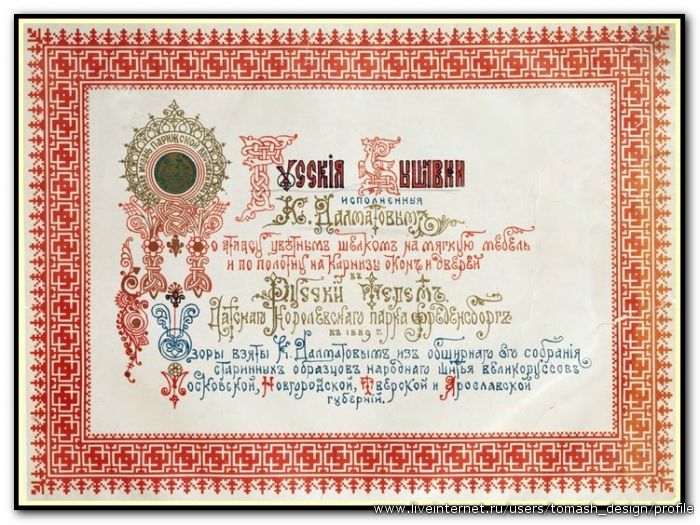 ПАРИЖСКОЙ
Русскія Вышивки
исполненныя
К. Далматовымъ
По атласу цвѣтнымъ шелкомъ на мягкую мебель
и по полотну на карнизу оконъ и дверей
въ
Русскій Теремъ
Датскаго Королевскаго парка Фреденсборгъ
въ 1889 г.
Узоры взяты К. Далматовымъ изъ обширнаго его собранія
старинныхъ образцовъ народнаго шитья великоруссовъ
Московской, Новгородской, Тверской и Ярославской
губерній.
www.liveinternet.ru/users/tomash_design/profile